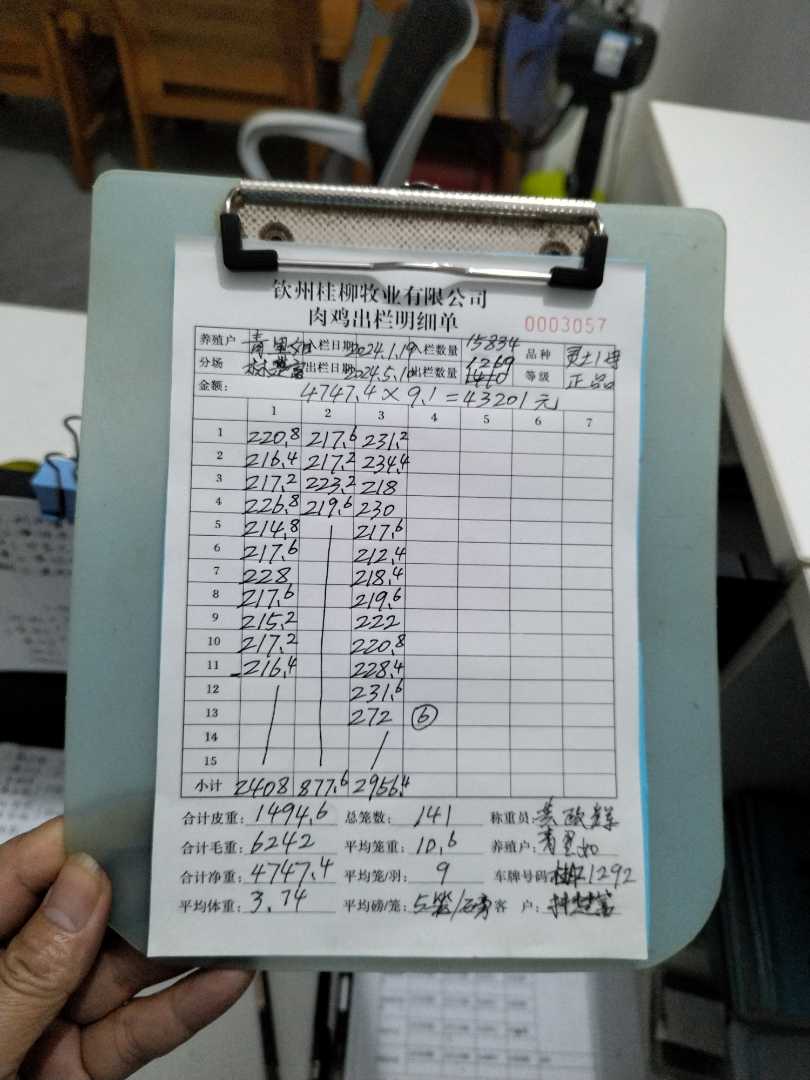 钦州桂柳牧业有限公司
肉鸡出栏明细单 0003057
养殖户 入栏日期 2024.1.19 入栏数量 15834 品种
分场 出栏日期 2024.5.10 出栏数量 1269 等级 正品
金额: 4747.4×9.1=43201元
1 2 3 4 5 6 7
1 220.8 217.6 231.2
2 216.4 217.2 234.4
3 217.2 223.2 218
4 226.8 219.6 230
5 214.8 217.6
6 217.6 212.4
7 228 218.4
8 217.6 219.6
9 215.2 222
10 217.2 220.8
11 216.4 228.4
12 231.6
13 272 ⑥
14
15
小计 2408 877.6 2956.4
合计皮重: 1494.6 总笼数: 141 称重员:
合计毛重: 6242 平均笼重: 10.6 养殖户:
合计净重: 4747.4 平均笼/羽: 9 车牌号码 1292
平均体重: 3.74 平均磅/笼: 5笼/磅 客 户: